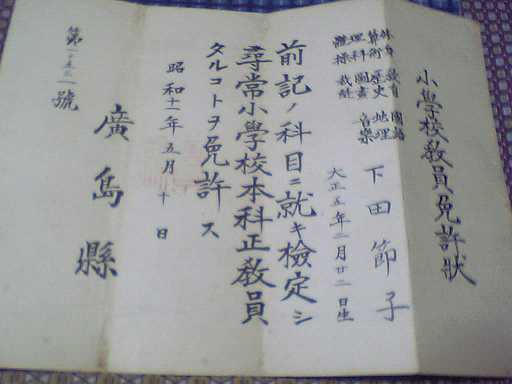 小學校教員免許狀
修身 教育 國語
算術 歷史 地理
理科 圖畫 音樂
體操 裁縫
下田節子
大正五年二月廿二日生
前記ノ科目ニ就キ檢定シ
尋常小學校本科正教員
タルコトヲ免許ス
昭和十一年五月十日
廣島縣
第 號